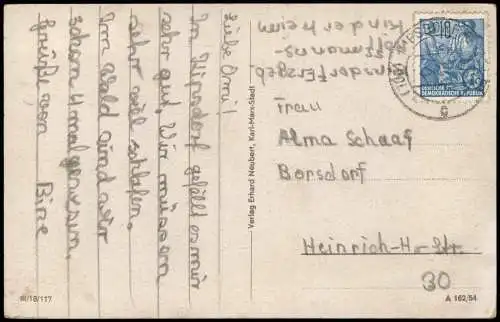 Liebe Omi!
In Kipsdorf gefällt es mir
sehr gut. Wir müssen
sehr viel schlafen.
Im Wald sind wir
schon 4 mal gewesen.
Grüße von
Bine
Kinderheim
Frau
Alma Schaaf
Borsdorf
Heinrich-H.-Str.
30
Verlag Erhard Neubert, Karl-Marx-Stadt
DEUTSCHE
DEMOKRATISCHE REPUBLIK
III/18/117
A 162/54